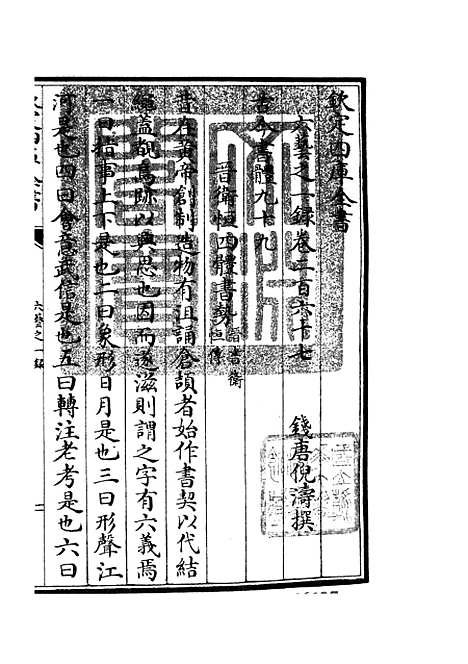 欽定四庫全書
六藝之一錄卷二百六十七
錢唐倪濤撰
古今書體九十九
晉衛恒四體書勢 晉書衛恒傳
昔在黃帝創制造物有沮誦倉頡者始作書契以代結
繩蓋覩鳥跡以興思也因而遂滋則謂之字有六義焉
一曰指事上下是也二曰象形日月是也三曰形聲江
河是也四曰會意武信是也五曰轉注老考是也六曰
六藝之一錄